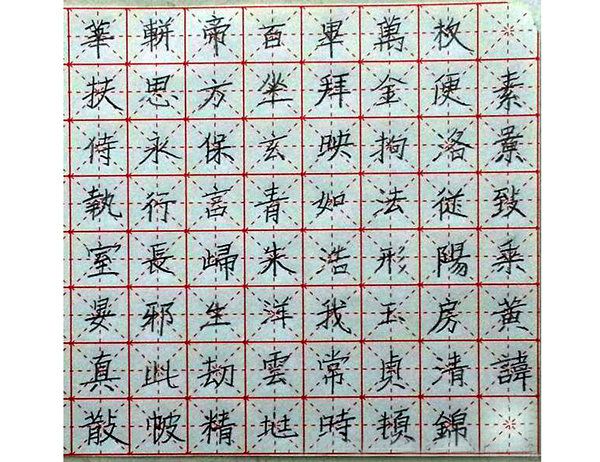 華軿帝百畢萬枚
扶思方坐拜金便素
侍永保玄映拘洛景
執行言青如法從致
室長歸朱浩形陽乘
晏邪生洋我玉房黃
真此劫雲常貞清諱
散帔精地時頓錦